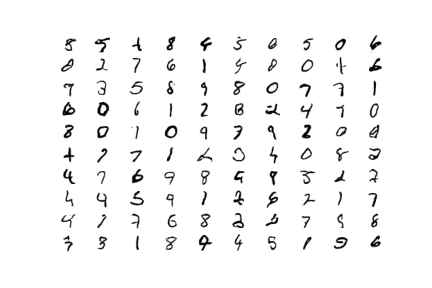 5 5 1 8 4 5 0 5 0 6
0 2 7 6 1 4 0 0 1 6
9 3 5 8 9 8 0 7 7 1
6 0 6 1 2 8 2 4 7 0
8 0 1 0 9 7 9 2 0 0
1 7 7 1 2 3 4 0 8 2
4 7 6 9 8 5 9 3 2 7
4 4 5 9 1 2 6 2 1 7
4 7 7 6 8 2 2 7 9 8
3 3 1 8 9 4 5 1 9 6